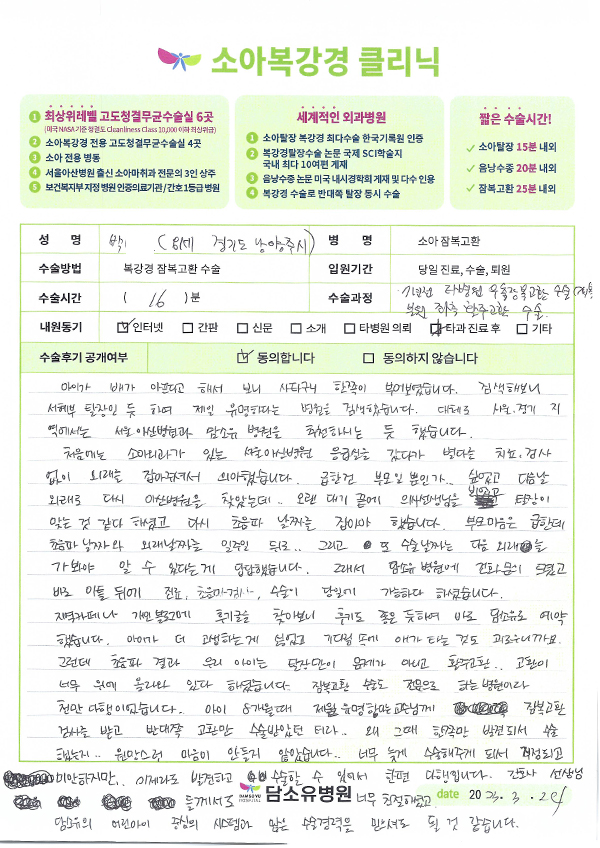 소아복강경 클리닉
1 최상위레벨 고도청결무균수술실 6곳
(미국 NASA 기준 청결도 Cleanliness Class 10,000 이하 최상위급)
2 소아복강경 전용 고도청결무균수술실 4곳
3 소아 전용 병동
4 서울아산병원 출신 소아마취과 전문의 3인 상주
5 보건복지부 지정 병원 인증의료기관 / 간호 1등급 병원
세계적인 외과병원
1 소아탈장 복강경 최다수술 한국기록원 인증
2 복강경탈장수술 논문 국제 SCI학술지
국내 최다 10여편 게재
3 음낭수종 논문 미국 내시경학회 게재 및 다수 인용
4 복강경 수술로 반대쪽 탈장 동시 수술
짧은 수술시간!
✓ 소아탈장 15분 내외
✓ 음낭수종 20분 내외
✓ 잠복고환 25분 내외
성 명 ( 경기도 남양주시) 병 명 소아 잠복고환
수술방법 복강경 잠복고환 수술 입원기간 당일 진료, 수술, 퇴원
수술시간 ( 16 )분 수술과정 타병원 우측잠복고환 수술
본원 좌측 수술.
내원동기 ☑ 인터넷 □ 간판 □ 신문 □ 소개 □ 타병원 의뢰 ☑ 타과 진료 후 □ 기타
수술후기 공개여부 ☑ 동의합니다 □ 동의하지 않습니다
아이가 배가 아프다고 해서 보니 사타구니 한쪽이 부어보였습니다. 검색해보니
서혜부 탈장인 듯 하여 제일 유명하다는 병원을 검색했습니다. 대체로 서울.경기 지
역에서는 서울아산병원과 담소유 병원을 추천하시는 듯 했습니다.
처음에는 소아외과가 있는 서울아산병원 응급실을 갔다가 별다른 치료.검사
없이 외래를 잡아주셔서 의아했습니다. 급한건 부모일 뿐인가.. 싶었고 다음날
외래로 다시 아산병원을 찾았는데.. 오랜 대기 끝에 의사선생님을 뵈었고 탈장이
맞는 것 같다 하셨고 다시 초음파 날짜를 잡아야 했습니다. 부모마음은 급한데
초음파 날짜와 외래날짜를 일주일 뒤로.. 그리고 또 수술날짜는 다음 외래를
가봐야 알 수 있다는게 답답했습니다. 그래서 담소유 병원에 전화문의 드렸고
바로 이틀 뒤에 진료, 초음파검사, 수술이 당일에 가능하다 하셨습니다.
지역카페나 개인블로그에 후기글을 찾아보니 후기도 좋은 듯하여 바로 담소유로 예약
했습니다. 아이가 더 고생하는게 싫었고 기다림 속에 애가 타는 것도 괴로우니까요.
그런데 초음파 결과 우리 아이는 탈장만이 문제가 아니고 활주고환.. 고환이
너무 위에 올라와 있다 하셨습니다. 잠복고환 수술도 전문으로 하는병원이라
천만 다행이었습니다. 아이 8개월때 제일 유명하다는 교수님께 잠복고환
검사를 받고 반대쪽 고환만 수술받았던 터라.. 왜 그때 한쪽만 발견되서 수술
했는지.. 원망스러운 마음이 안들지 않았습니다.. 너무 늦게 수술해주게 되서 걱정되고
미안하지만.. 이제라도 발견하고 수술할 수 있어서 한편 다행입니다. 간호사 선생님
들께서도 너무 친절해주셨고
담소유병원
DAMSOYU HOSPITAL
date 2023. 3. 24
담소유의 어린아이 중심의 시스템과 많은 수술경력을 믿으셔도 될 것 같습니다.